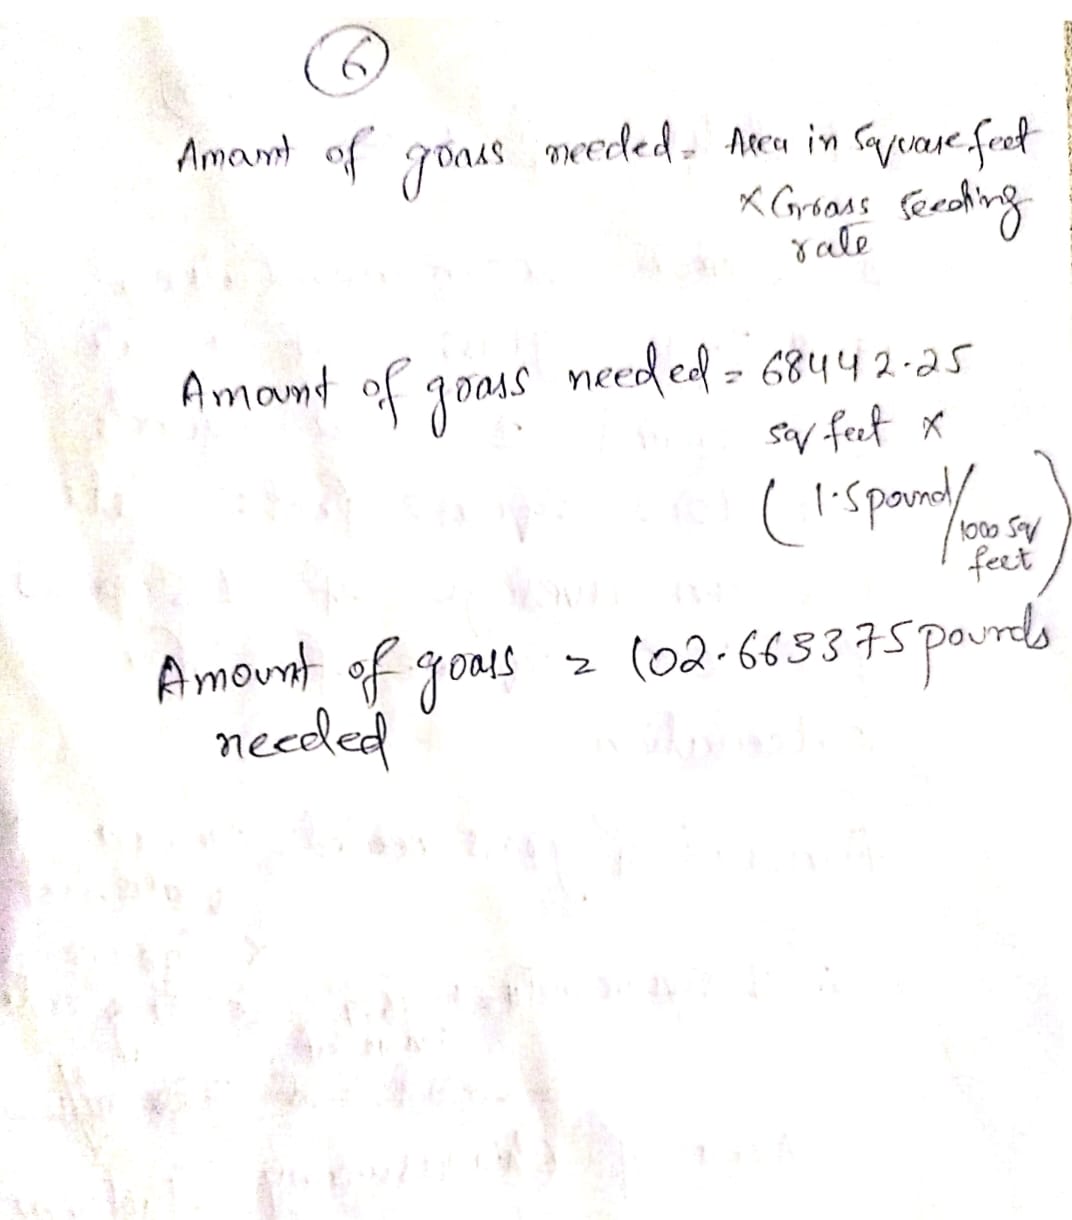 6
Amount of grass needed = Area in Square feet
x Grass seeding
rate
Amount of grass needed = 68442.25
sq feet x
( 1.5 pound/1000 sq
feet )
Amount of grass = 102.663375 pounds
needed